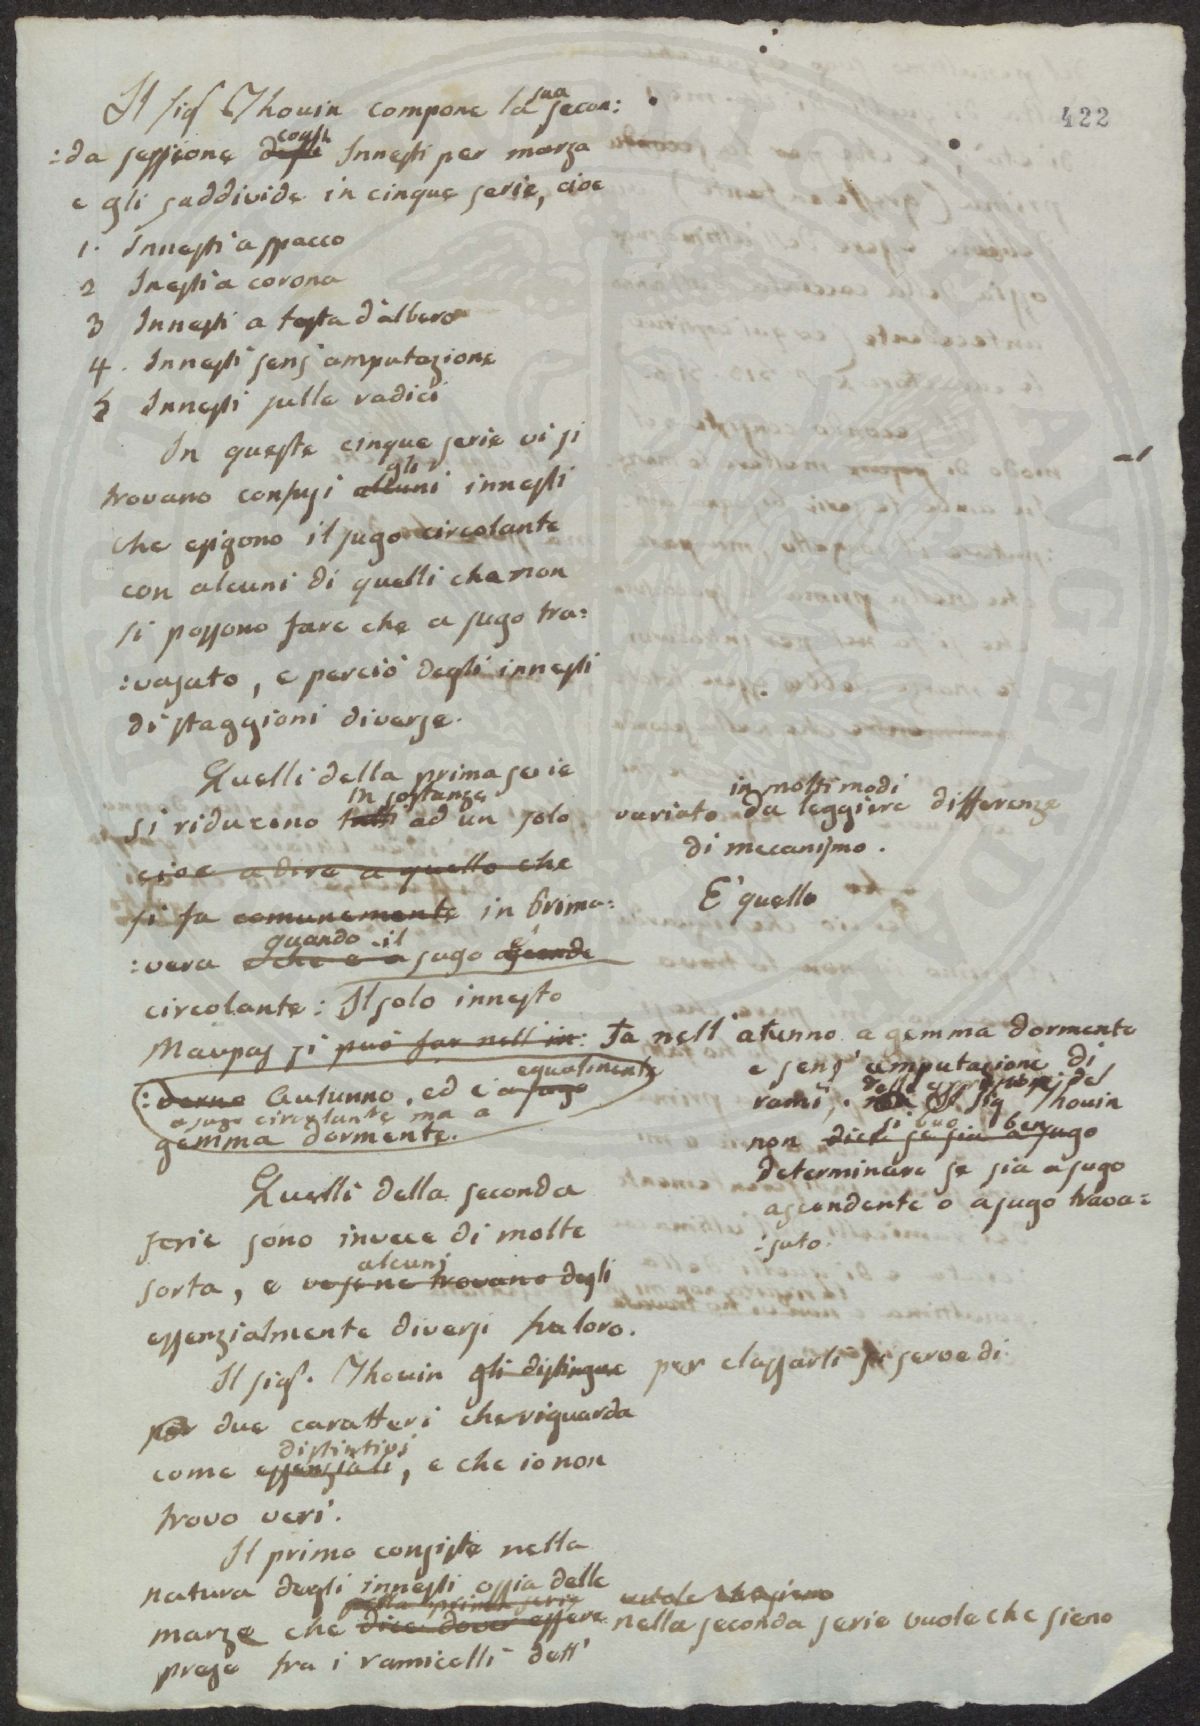 422
Il sig.r Thouin compone la sua secon:
:da sessione degli cogli Innesti per marza
e gli suddivide in cinque serie, cioe
1. Innesti a spacco
2 Inesti a corona
3 Innesti a testa d'albero
4. Innesti sens' amputazione
5 Innesti sulle radici
In queste cinque serie vi si
trovano confusi alcuni gli innesti
che esigono il sugo circolante
con alcuni di quelli che non
si possono fare che a sugo tra:
:vasato, e perciò degli innesti
di staggioni diverse.
Quelli della prima serie
si riducono tutti in sostanza ad un solo variato in molti modi da leggiere differenze
di mecanismo.
cioe a dire a quello che
si fa comunemente in prima: E' quello
:vera che e a quando il sugo ascende è
circolante: Il solo innesto
Maupas si può far nell' in: Fa nell' atunno a gemma dormente
:verno Autunno, ed è a sugo egualmente
a sugo circolante ma a
gemma dormente.
e senz' amputazione di
rami, delle espressioni del
non Il sig Thouin
non dice se sia a sugo si puo ben
determinare se sia a sugo
ascendente o a sugo trava=
:sato.
Quelli della seconda
serie sono invece di molte
sorta, e ve se ne trovano degli alcuni
essenzialmente diversi fra loro.
Il sig.r Thouin gli distingue per classarli si serve di
per due caratteri che riguarda
come essenziali distintivi, e che io non
trovo veri.
Il primo consiste nella
natura degli innesti ossia delle
nella prima serie vuole che sieno
marze che dice dover essere nella seconda serie vuole che sieno
prese fra i ramicelli dell'